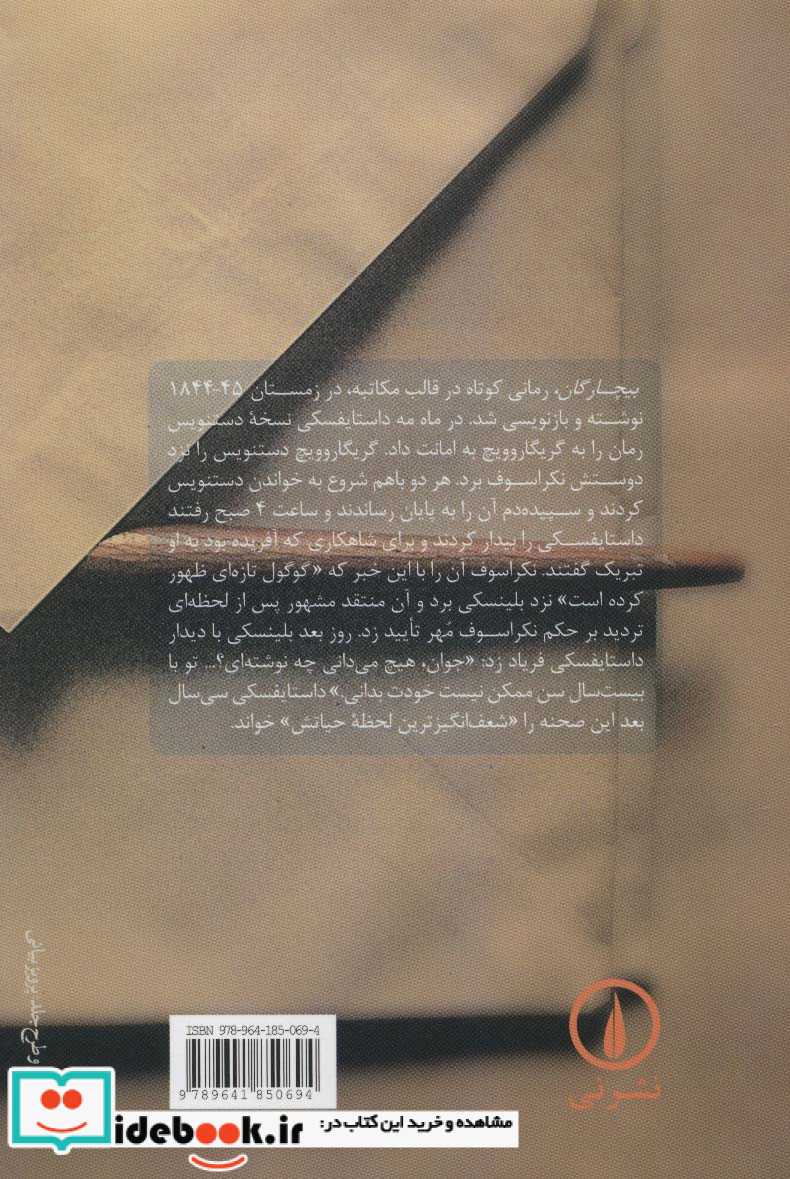 بیچارگان، رمانی کوتاه در قالب مکاتبه، در زمستان ۴۵-۱۸۴۴
نوشته و بازنویسی شد. در ماه مه داستایفسکی نسخهٔ دستنویس
رمان را به گریگاروویچ به امانت داد. گریگاروویچ دستنویس را نزد
دوستش نکراسوف برد. هر دو باهم شروع به خواندن دستنویس
کردند و سپیده‌دم آن را به پایان رساندند و ساعت ۴ صبح رفتند
داستایفسکی را بیدار کردند و برای شاهکاری که آفریده بود به او
تبریک گفتند. نکراسوف آن را با این خبر که «گوگول تازه‌ای ظهور
کرده است» نزد بلینسکی برد و آن منتقد مشهور پس از لحظه‌ای
تردید بر حکم نکراسوف مُهر تأیید زد. روز بعد بلینسکی با دیدار
داستایفسکی فریاد زد: «جوان، هیچ می‌دانی چه نوشته‌ای؟... تو با
بیست‌سال سن ممکن نیست خودت بدانی.» داستایفسکی سی‌سال
بعد این صحنه را «شعف‌انگیزترین لحظهٔ حیاتش» خواند.
و طرح جلد: پرویز بیانی
ISBN 978-964-185-069-4
9 789641 850694
نشرنی
مشاهده و خرید این کتاب در:
idebook.ir